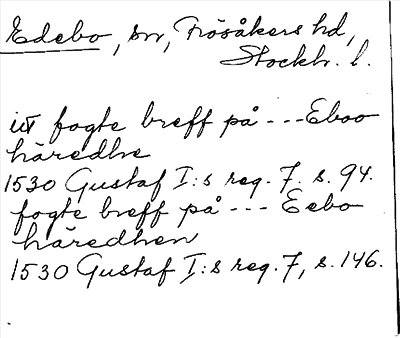 Edebo, sn, Frösåkers hd,
Stockh. l.
itt fogte breff på --- Eboo
häredhe
1530 Gustaf I:s reg. 7. s. 94.
fogte breff på --- Eebo
häredhen
1530 Gustaf I:s reg. 7, s. 146.